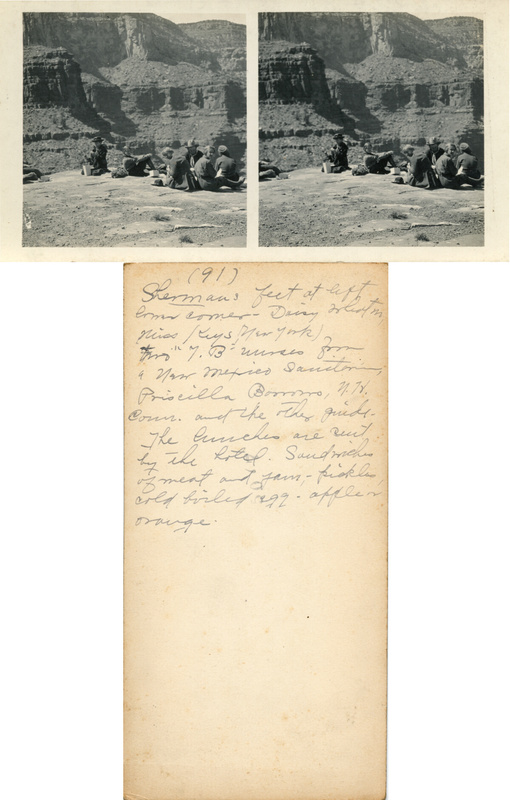 (91)
Shermans feet at left
lower corner - Daisy
Miss Keys (New York)
Two "T.B" nurses from
a New Mexico Sanitorium,
Priscilla N.H.
Conn. and the other guide.
The lunches are sent
by the hotel. Sandwiches
of meat and jam, - pickles,
cold boiled egg - apple or
orange.